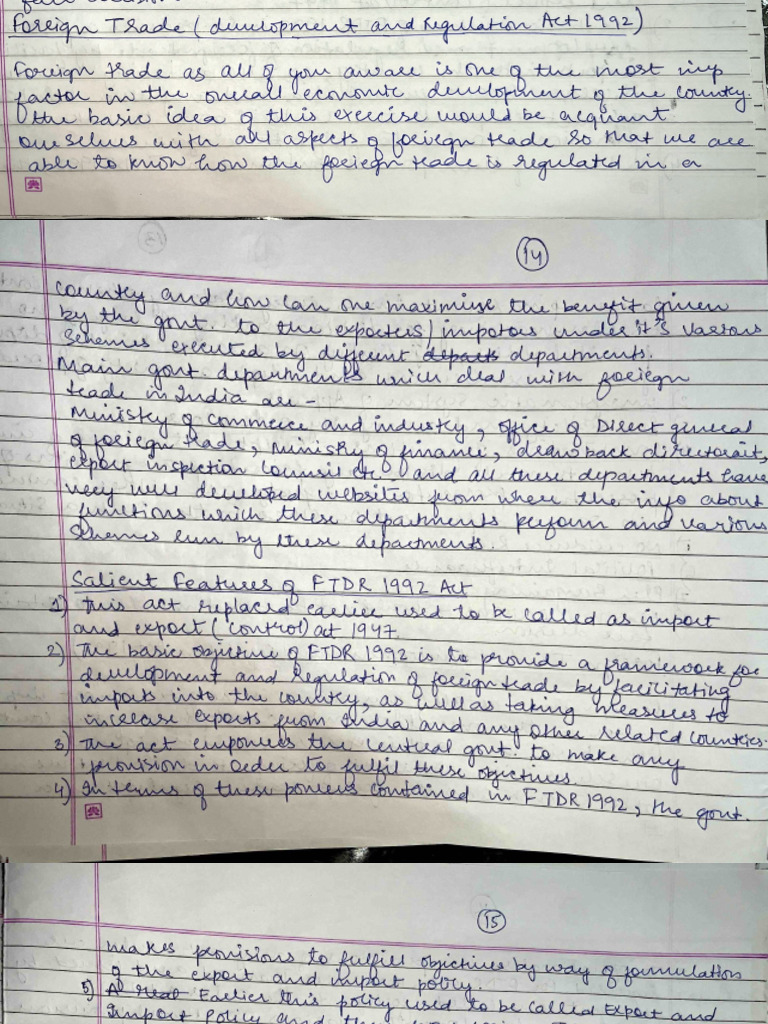 Foreign Trade (development and Regulation Act 1992)
Foreign trade as all of you aware is one of the most imp
factor in the overall economic development of the country.
the basic idea of this exercise would be acquaint
ourselves with all aspects of foreign trade so that we are
able to know how the foreign trade is regulated in a
14
country and how can one maximise the benefit given
by the govt. to the exporters/importers under it's various
schemes executed by different departs departments.
Main govt. departments which deal with foreign
trade in India are -
Ministry of commerce and industry, office of Direct general
of foreign trade, ministry of finance, drawback directorait,
export inspection council etc. and all these departments have
very well developed websites from where the info about
functions which these departments perform and various
schemes run by these departments.
Salient Features of FTDR 1992 Act
1) This act replaced earlier used to be called as import
and export (control) act 1947.
2) The basic objective of FTDR 1992 is to provide a framework for
development and Regulation of foreign trade by facilitating
imports into the country, as well as taking measures to
increase exports from India and any other related countries.
3) The act empowers the central govt. to make any
provision in order to fulfil these objectives.
4) In terms of these powers contained in FTDR 1992, the govt.
15
makes provisions to fulfill objectives by way of formulation
of the export and import policy.
5) Earlier this policy used to be called Export and
Import Policy and the